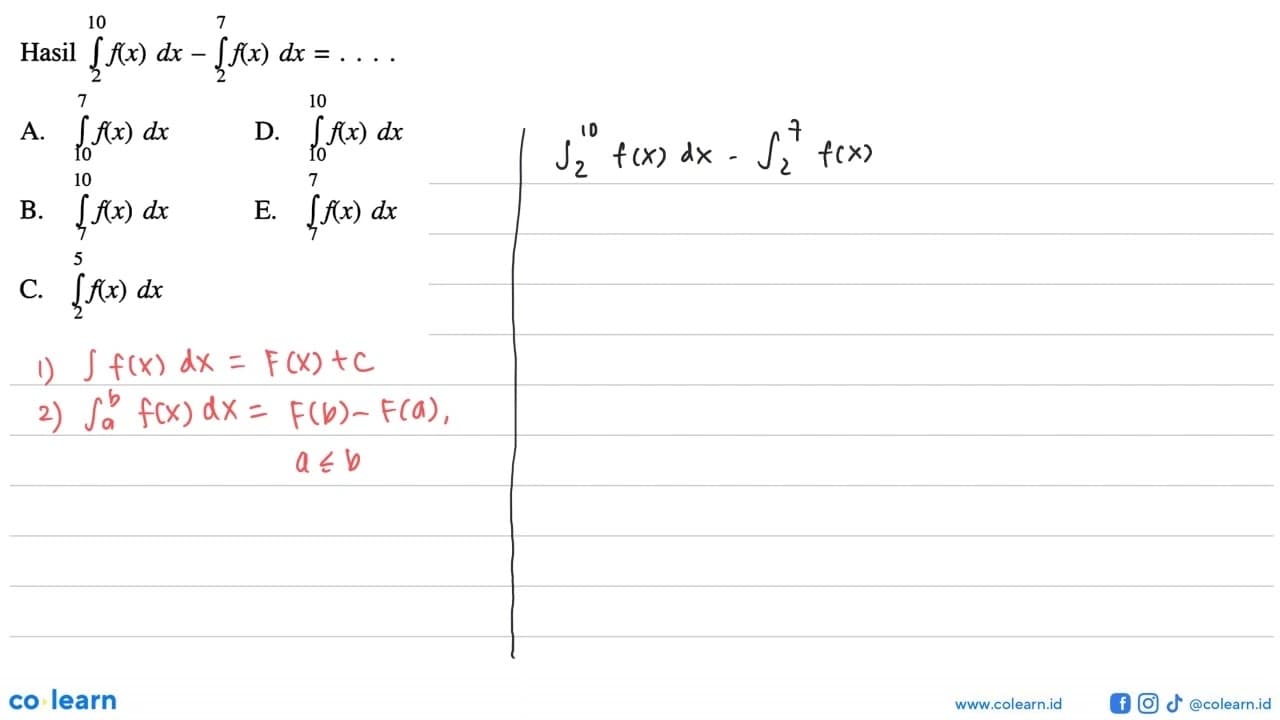 Hasil ∫₂¹⁰ f(x) dx – ∫₂⁷ f(x) dx = . . . .
A. ∫₁₀⁷ f(x) dx
D. ∫₁₀¹⁰ f(x) dx
B. ∫₇¹⁰ f(x) dx
E. ∫₇⁷ f(x) dx
C. ∫₂⁵ f(x) dx
1) ∫ f(x) dx = F(x) + C
2) ∫ₐᵇ f(x) dx = F(b) – F(a),
a ≤ b
∫₂¹⁰ f(x) dx - ∫₂⁷ f(x)
co learn
www.colearn.id
@colearn.id